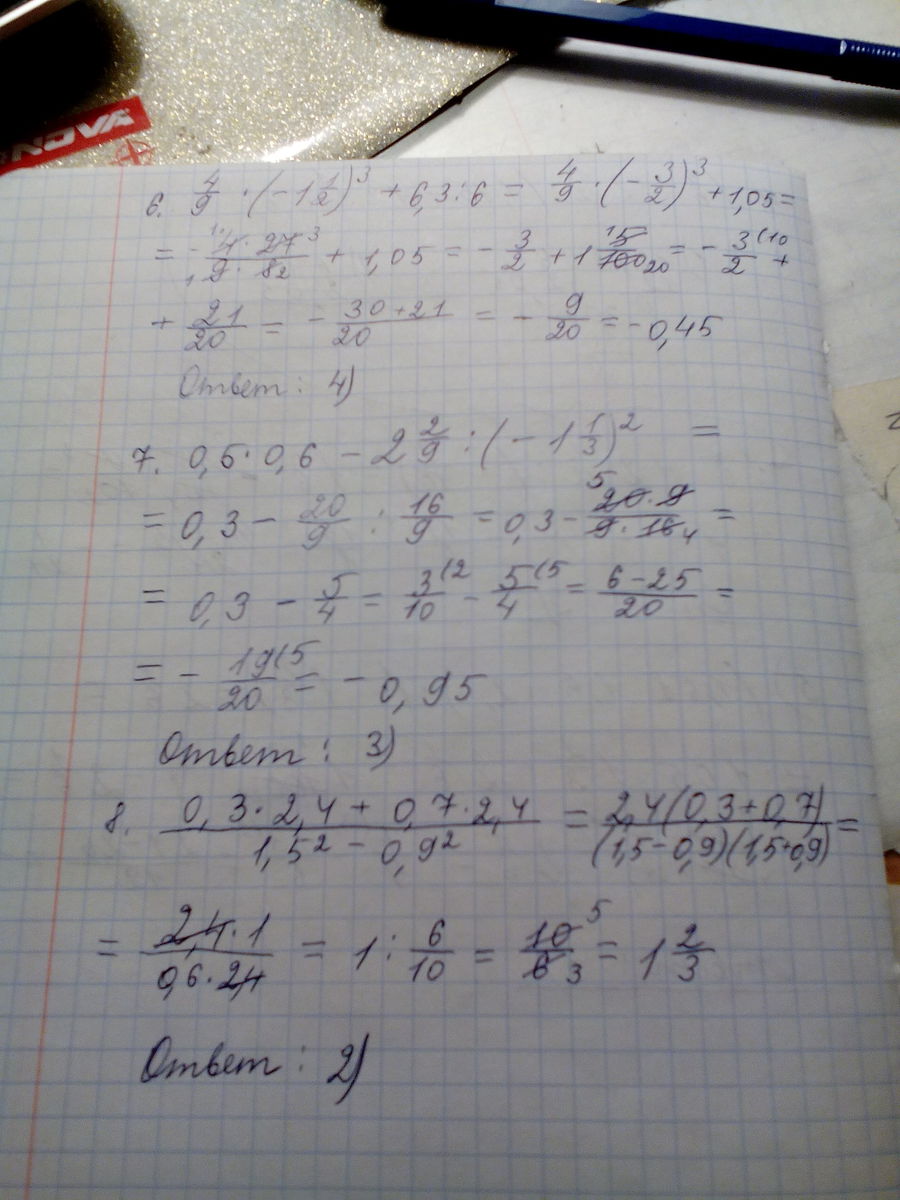 NOVA
6. 4/9 · (-1 1/2)^3 + 6,3 : 6 = 4/9 · (-3/2)^3 + 1,05 =
= - 4 · 27 3 / 9 · 8 2 + 1,05 = - 3/2 + 1 5/100 20 = - 3/2 (10 +
+ 21/20 = - 30 + 21 / 20 = - 9/20 = - 0,45
Ответ : 4)
7. 0,5 · 0,6 - 2 2/9 : (-1 1/3)^2 =
= 0,3 - 20/9 : 16/9 = 0,3 - 5 20 · 9 / 9 · 16 4 =
= 0,3 - 5/4 = 3/10 (2 - 5/4 (5 = 6 - 25 / 20 =
= - 19/20 (5 = - 0,95
Ответ : 3)
8. 0,3 · 2,4 + 0,7 · 2,4 / 1,5² - 0,9² = 2,4(0,3 + 0,7) / (1,5 - 0,9)(1,5 + 0,9) =
= 2,4 · 1 / 0,6 · 2,4 = 1 : 6/10 = 10 5 / 6 3 = 1 2/3
Ответ : 2)